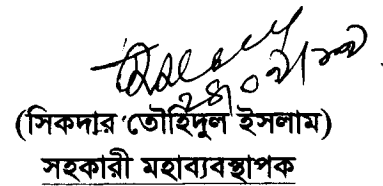 (সিকদার তৌহিদুল ইসলাম)
সহকারী মহাব্যবস্থাপক